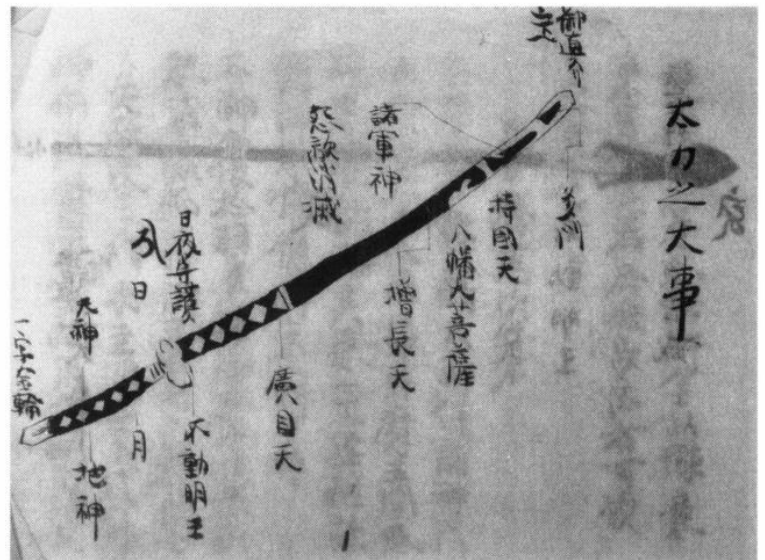 太刀之大事
多門
持國天
八幡大菩薩
諸軍神
増長天
怨敵消滅
廣目天
日夜守護
不動明王
日
月
天神
地神
一字金輪